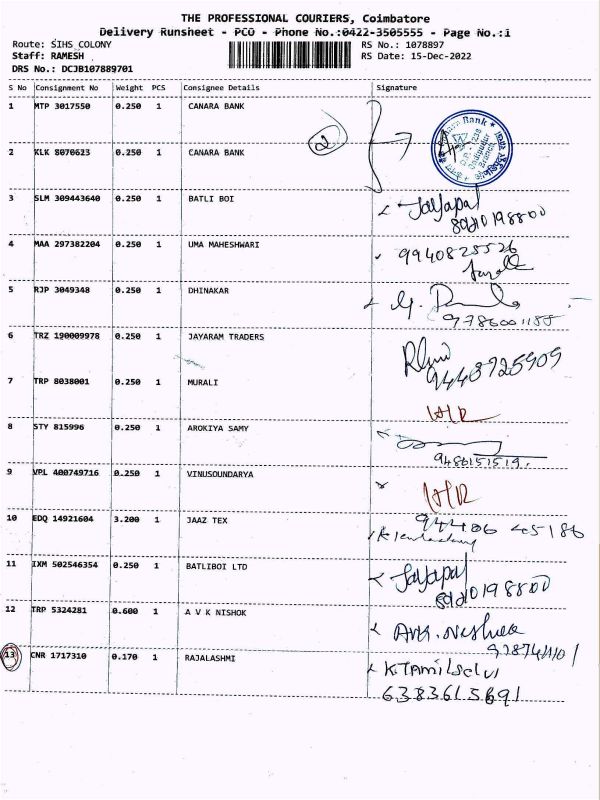 THE PROFESSIONAL COURIERS, Coimbatore
Delivery Runsheet - PCO - Phone No.:0422-3505555 - Page No.:1
Route: SIHS COLONY RS No.: 1078897
Staff: RAMESH RS Date: 15-Dec-2022
DRS No.: DCJB107889701
S No Consignment No Weight PCS Consignee Details Signature
1 MTP 3017550 0.250 1 CANARA BANK
2
2 KLK 8070623 0.250 1 CANARA BANK
3 SLM 309443640 0.250 1 BATLI BOI Jayapal
4 MAA 297382204 0.250 1 UMA MAHESHWARI 9940825526
5 RJP 3049348 0.250 1 DHINAKAR
9786001188
6 TRZ 190009978 0.250 1 JAYARAM TRADERS
9443925909
7 TRP 8038001 0.250 1 MURALI
8 STY 815996 0.250 1 AROKIYA SAMY
9486151519
9 VPL 400749716 0.250 1 VINUSOUNDARYA
10 EDQ 14921604 3.200 1 JAAZ TEX
11 IXM 502546354 0.250 1 BATLIBOI LTD Jayapal
12 TRP 5324281 0.600 1 A V K NISHOK
13 CNR 1717310 0.170 1 RAJALASHMI K.Tamilselvi
6383615691